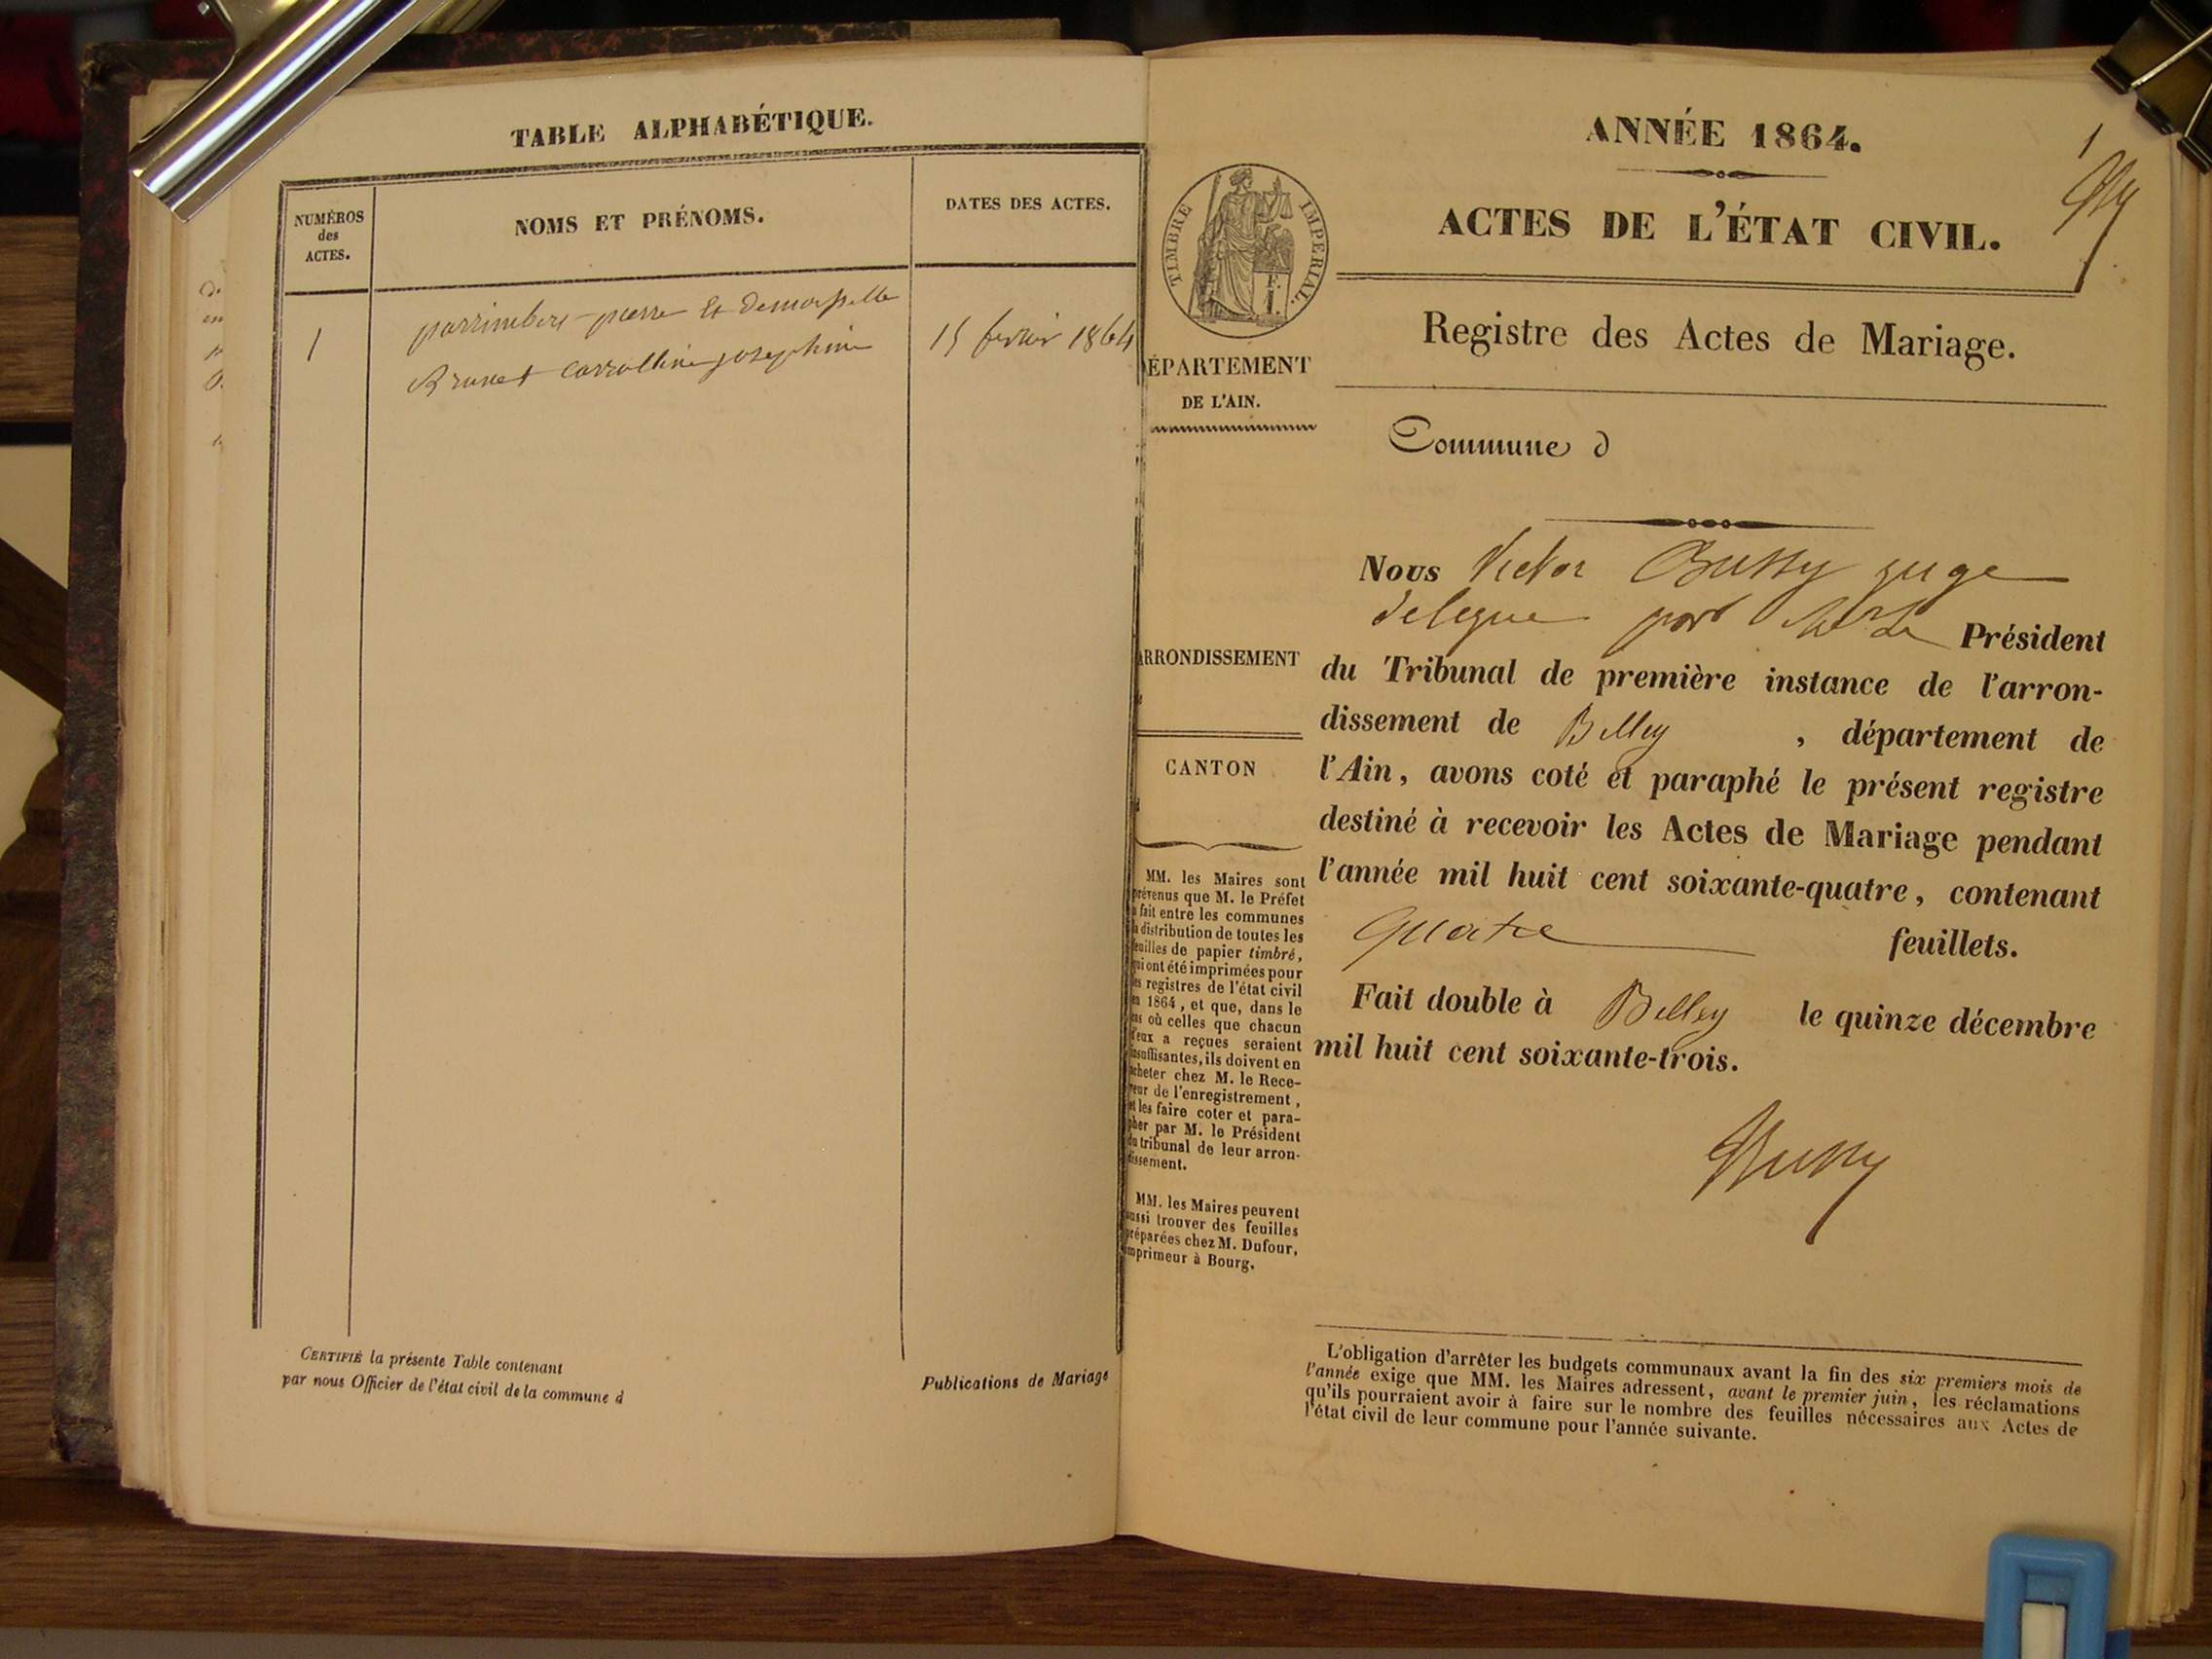 TABLE ALPHABÉTIQUE.
NUMÉROS
des
ACTES.
NOMS ET PRÉNOMS.
DATES DES ACTES.
1
pierre Et
Brunet josephine
15 fevrier 1864
CERTIFIÉ la présente Table contenant
par nous Officier de l'état civil de la commune d
Publications de Mariage
TIMBRE IMPERIAL.
ÉPARTEMENT
DE L'AIN.
ARRONDISSEMENT
CANTON
MM. les Maires sont
prévenus que M. le Préfet
a fait entre les communes
la distribution de toutes les
feuilles de papier timbré,
qui ont été imprimées pour
les registres de l'état civil
en 1864, et que, dans le
cas où celles que chacun
d'eux a reçues seraient
insuffisantes, ils doivent en
acheter chez M. le Rece-
veur de l'enregistrement,
et les faire coter et para-
pher par M. le Président
du tribunal de leur arron-
dissement.
MM. les Maires peuvent
aussi trouver des feuilles
préparées chez M. Dufour,
imprimeur à Bourg.
ANNÉE 1864.
1
ACTES DE L'ÉTAT CIVIL.
Registre des Actes de Mariage.
Commune d
Nous Victor Bussy juge
delegue par Mr Le Président
du Tribunal de première instance de l'arron-
dissement de Belley , département de
l'Ain, avons coté et paraphé le présent registre
destiné à recevoir les Actes de Mariage pendant
l'année mil huit cent soixante-quatre, contenant
Quatre feuillets.
Fait double à Belley le quinze décembre
mil huit cent soixante-trois.
Bussy
L'obligation d'arrêter les budgets communaux avant la fin des six premiers mois de
l'année exige que MM. les Maires adressent, avant le premier juin, les réclamations
qu'ils pourraient avoir à faire sur le nombre des feuilles nécessaires aux Actes de
l'état civil de leur commune pour l'année suivante.